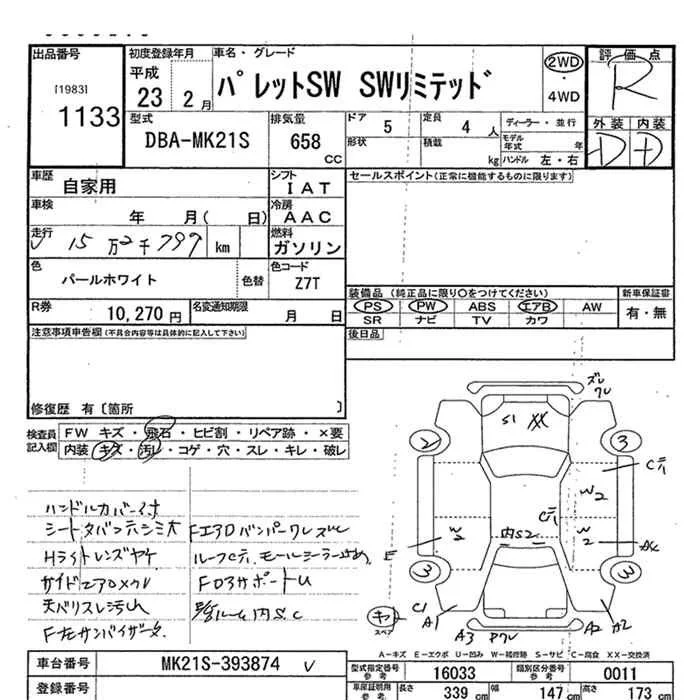 出品番号
[1983]
1133
初度登録年月
平成
23 2月
車名・グレード
パレットSW SWリミテッド
2WD
4WD
評価点
R
外装 内装
D D
型式
DBA-MK21S
排気量
658
CC
ドア
5
定員
4 人
形状
積載
kg
ディーラー・並行
モデル年式 年
ハンドル 左・右
車歴
自家用
シフト
IAT
セールスポイント(正常に機能するものに限ります)
車検
年 月( 日)
冷房
AAC
走行
15万2千799 km
燃料
ガソリン
色
パールホワイト
色替
色コード
Z7T
R券
10,270円
名変通知期限
月 日
装備品 (純正品に限り〇をつけてください)
PS PW ABS エアB AW
SR ナビ TV カワ
新車保証書
有・無
注意事項申告欄(不具合内容等は具体的に記入して下さい)
後日品
修復歴 有〔箇所 〕
検査員
記入欄
FW キズ・飛石・ヒビ割・リペア跡・×要
内装 キズ・汚レ・コゲ・穴・スレ・キレ・破レ
ハンドルカバー付
シートタバコ穴シミ大
Hライトレンズヤケ
サイドエアロメクレ
天バリスレ汚れ
F左サンバイザー欠
FエアロバンパーワレズレC
FロアサポートU
内S.C
ズレ
ワレ
S1 XX
2
3
Cテ
W2
Cテ
W2
内S2
W2
E
3
3
キ
スペア
C1
A1
A3
Pワレ
A2
A2
A-キズ E-エクボ U-凹み W-補修跡 S-サビ C-腐食 XX-交換済
車台番号
MK21S-393874
型式指定番号
参考
16033
類別区分番号
参考
0011
登録番号
車庫証明用
参考
長さ
339 cm
幅
147 cm
高さ
173 cm